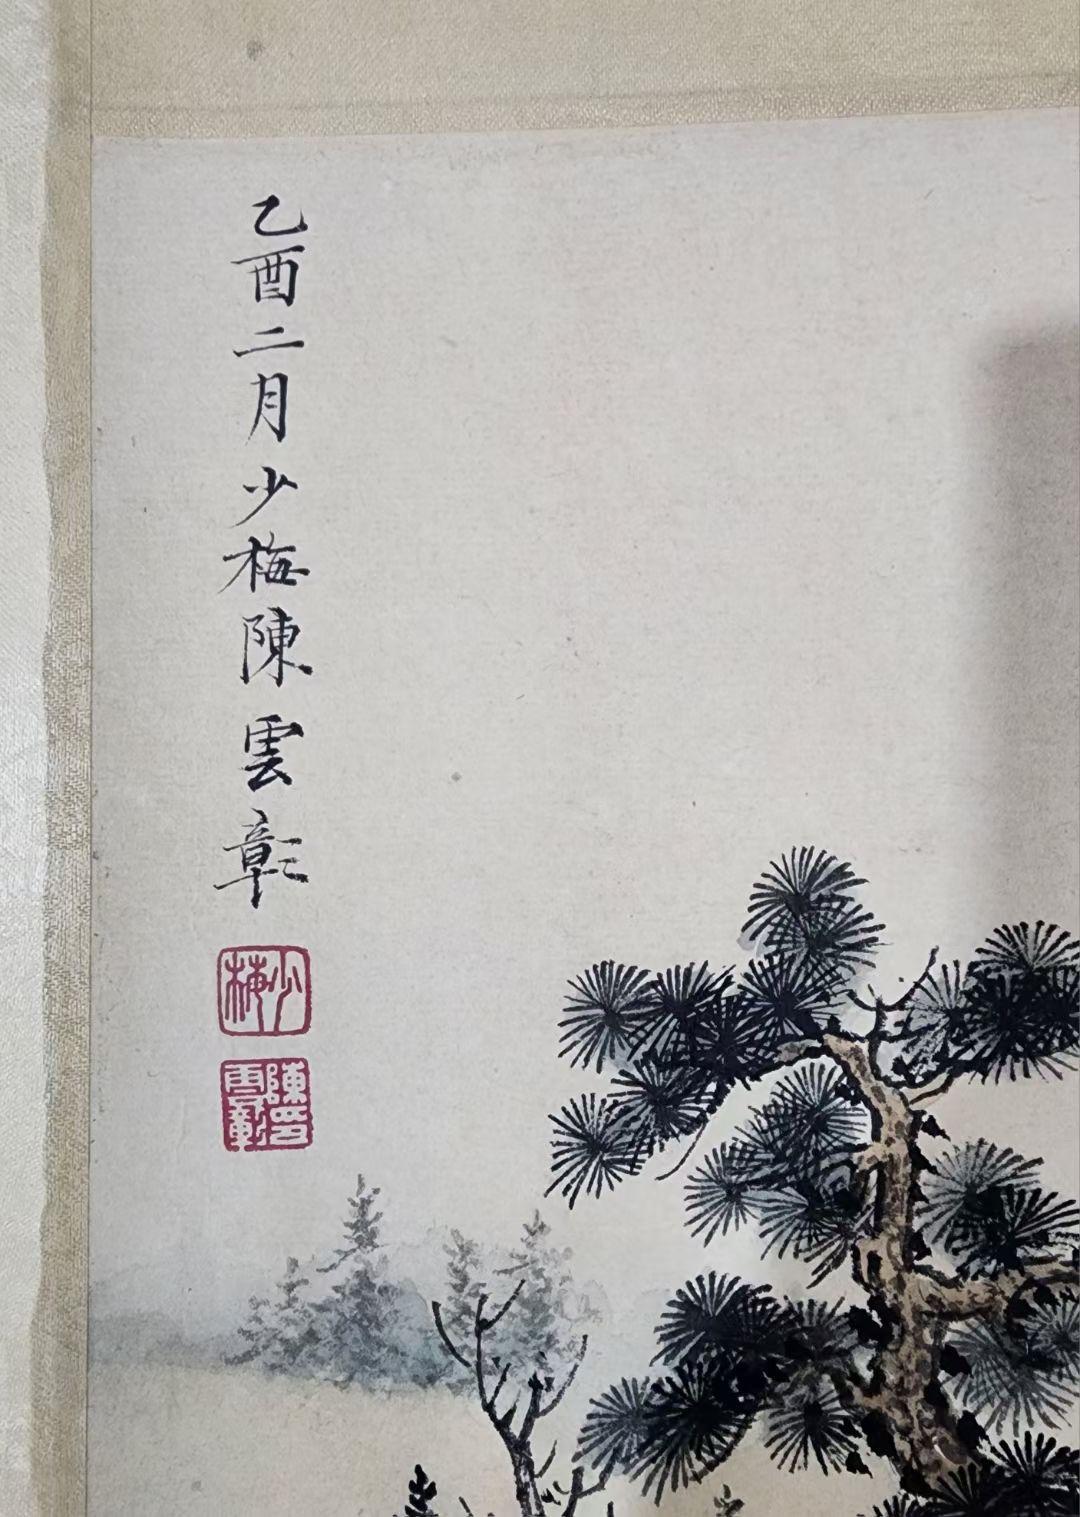 乙酉二月少梅陳雲彰
少梅
陳雲彰印